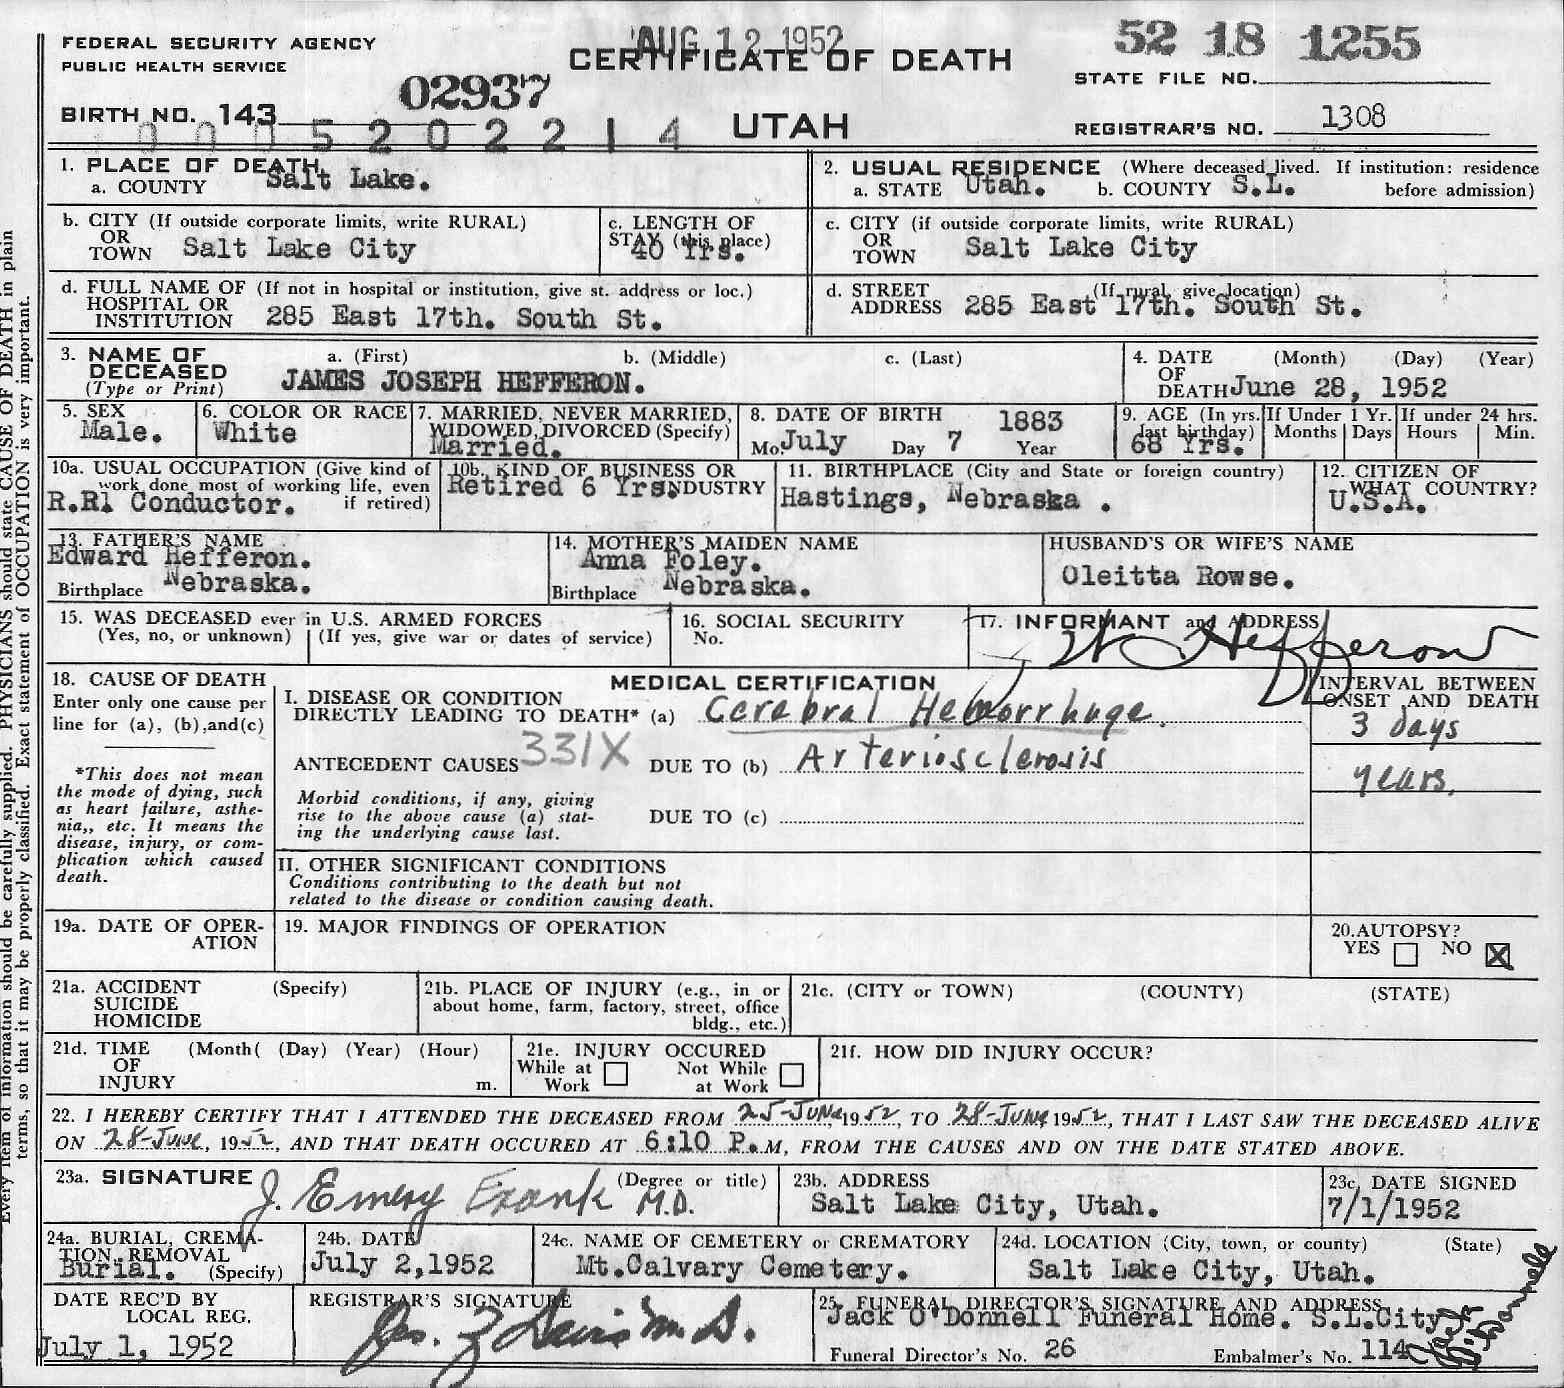 FEDERAL SECURITY AGENCY
PUBLIC HEALTH SERVICE
AUG 12 1952
CERTIFICATE OF DEATH
UTAH
52 18 1255
STATE FILE NO.
BIRTH NO. 143
02937
0005202214
REGISTRAR'S NO. 1308
1. PLACE OF DEATH
a. COUNTY Salt Lake.
2. USUAL RESIDENCE (Where deceased lived. If institution: residence before admission)
a. STATE Utah. b. COUNTY S.L.
b. CITY (If outside corporate limits, write RURAL)
OR
TOWN Salt Lake City
c. LENGTH OF
STAY (this place)
40 Yrs.
c. CITY (if outside corporate limits, write RURAL)
OR
TOWN Salt Lake City
d. FULL NAME OF (If not in hospital or institution, give st. address or loc.)
HOSPITAL OR
INSTITUTION 285 East 17th. South St.
d. STREET (If rural, give location)
ADDRESS 285 East 17th. South St.
3. NAME OF
DECEASED
(Type or Print)
a. (First) b. (Middle) c. (Last)
JAMES JOSEPH HEFFERON.
4. DATE (Month) (Day) (Year)
OF
DEATH June 28, 1952
5. SEX
Male.
6. COLOR OR RACE
White
7. MARRIED, NEVER MARRIED,
WIDOWED, DIVORCED (Specify)
Married.
8. DATE OF BIRTH 1883
Mo. July Day 7 Year
9. AGE (In yrs. last birthday)
68 Yrs.
If Under 1 Yr.
Months Days
If under 24 hrs.
Hours Min.
10a. USUAL OCCUPATION (Give kind of
work done most of working life, even
if retired)
R.Rl Conductor.
10b. KIND OF BUSINESS OR
INDUSTRY
Retired 6 Yrs.
11. BIRTHPLACE (City and State or foreign country)
Hastings, Nebraska .
12. CITIZEN OF
WHAT COUNTRY?
U.S.A.
13. FATHER'S NAME
Edward Hefferon.
Birthplace Nebraska.
14. MOTHER'S MAIDEN NAME
Anna Foley.
Birthplace Nebraska.
HUSBAND'S OR WIFE'S NAME
Oleitta Rowse.
15. WAS DECEASED ever in U.S. ARMED FORCES
(Yes, no, or unknown) (If yes, give war or dates of service)
16. SOCIAL SECURITY
No.
17. INFORMANT and ADDRESS
Hefferon
18. CAUSE OF DEATH
Enter only one cause per
line for (a), (b),and(c)
*This does not mean
the mode of dying, such
as heart failure, asthe-
nia,, etc. It means the
disease, injury, or com-
plication which caused
death.
MEDICAL CERTIFICATION
I. DISEASE OR CONDITION
DIRECTLY LEADING TO DEATH* (a) Cerebral Hemorrhage.
ANTECEDENT CAUSES 331X DUE TO (b) Arteriosclerosis
Morbid conditions, if any, giving
rise to the above cause (a) stat-
ing the underlying cause last.
DUE TO (c)
INTERVAL BETWEEN
ONSET AND DEATH
3 days
years.
II. OTHER SIGNIFICANT CONDITIONS
Conditions contributing to the death but not
related to the disease or condition causing death.
19a. DATE OF OPER-
ATION
19. MAJOR FINDINGS OF OPERATION
20. AUTOPSY?
YES NO X
21a. ACCIDENT (Specify)
SUICIDE
HOMICIDE
21b. PLACE OF INJURY (e.g., in or
about home, farm, factory, street, office
bldg., etc.)
21c. (CITY or TOWN) (COUNTY) (STATE)
21d. TIME (Month( (Day) (Year) (Hour)
OF
INJURY m.
21e. INJURY OCCURED
While at Work Not While at Work
21f. HOW DID INJURY OCCUR?
22. I HEREBY CERTIFY THAT I ATTENDED THE DECEASED FROM 25-JUNE, 1952, TO 28-JUNE 1952, THAT I LAST SAW THE DECEASED ALIVE
ON 28-JUNE, 1952, AND THAT DEATH OCCURED AT 6:10 P.M, FROM THE CAUSES AND ON THE DATE STATED ABOVE.
23a. SIGNATURE (Degree or title)
J. Emery Frank M.D.
23b. ADDRESS
Salt Lake City, Utah.
23c. DATE SIGNED
7/1/1952
24a. BURIAL, CREMA-
TION, REMOVAL
(Specify)
Burial.
24b. DATE
July 2,1952
24c. NAME OF CEMETERY or CREMATORY
Mt.Calvary Cemetery.
24d. LOCATION (City, town, or county) (State)
Salt Lake City, Utah.
DATE REC'D BY
LOCAL REG.
July 1, 1952
REGISTRAR'S SIGNATURE
Jas. Z Davis M.D.
25. FUNERAL DIRECTOR'S SIGNATURE AND ADDRESS
Jack O'Donnell Funeral Home. S.L.City
Jack O'Donnell
Funeral Director's No. 26 Embalmer's No. 114
Every item of information should be carefully supplied. PHYSICIANS should state CAUSE OF DEATH in plain
terms, so that it may be properly classified. Exact statement of OCCUPATION is very important.